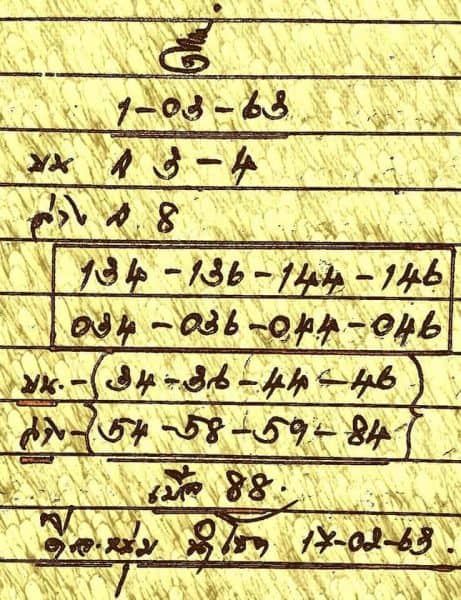 1-03-63
บน 1 3-4
ล่าง 1 8
134-136-144-146
034-036-044-046
บน-(34-36-44-46)
ล่าง-{54-58-59-84}
เบิ้ล 88.
17-02-63.